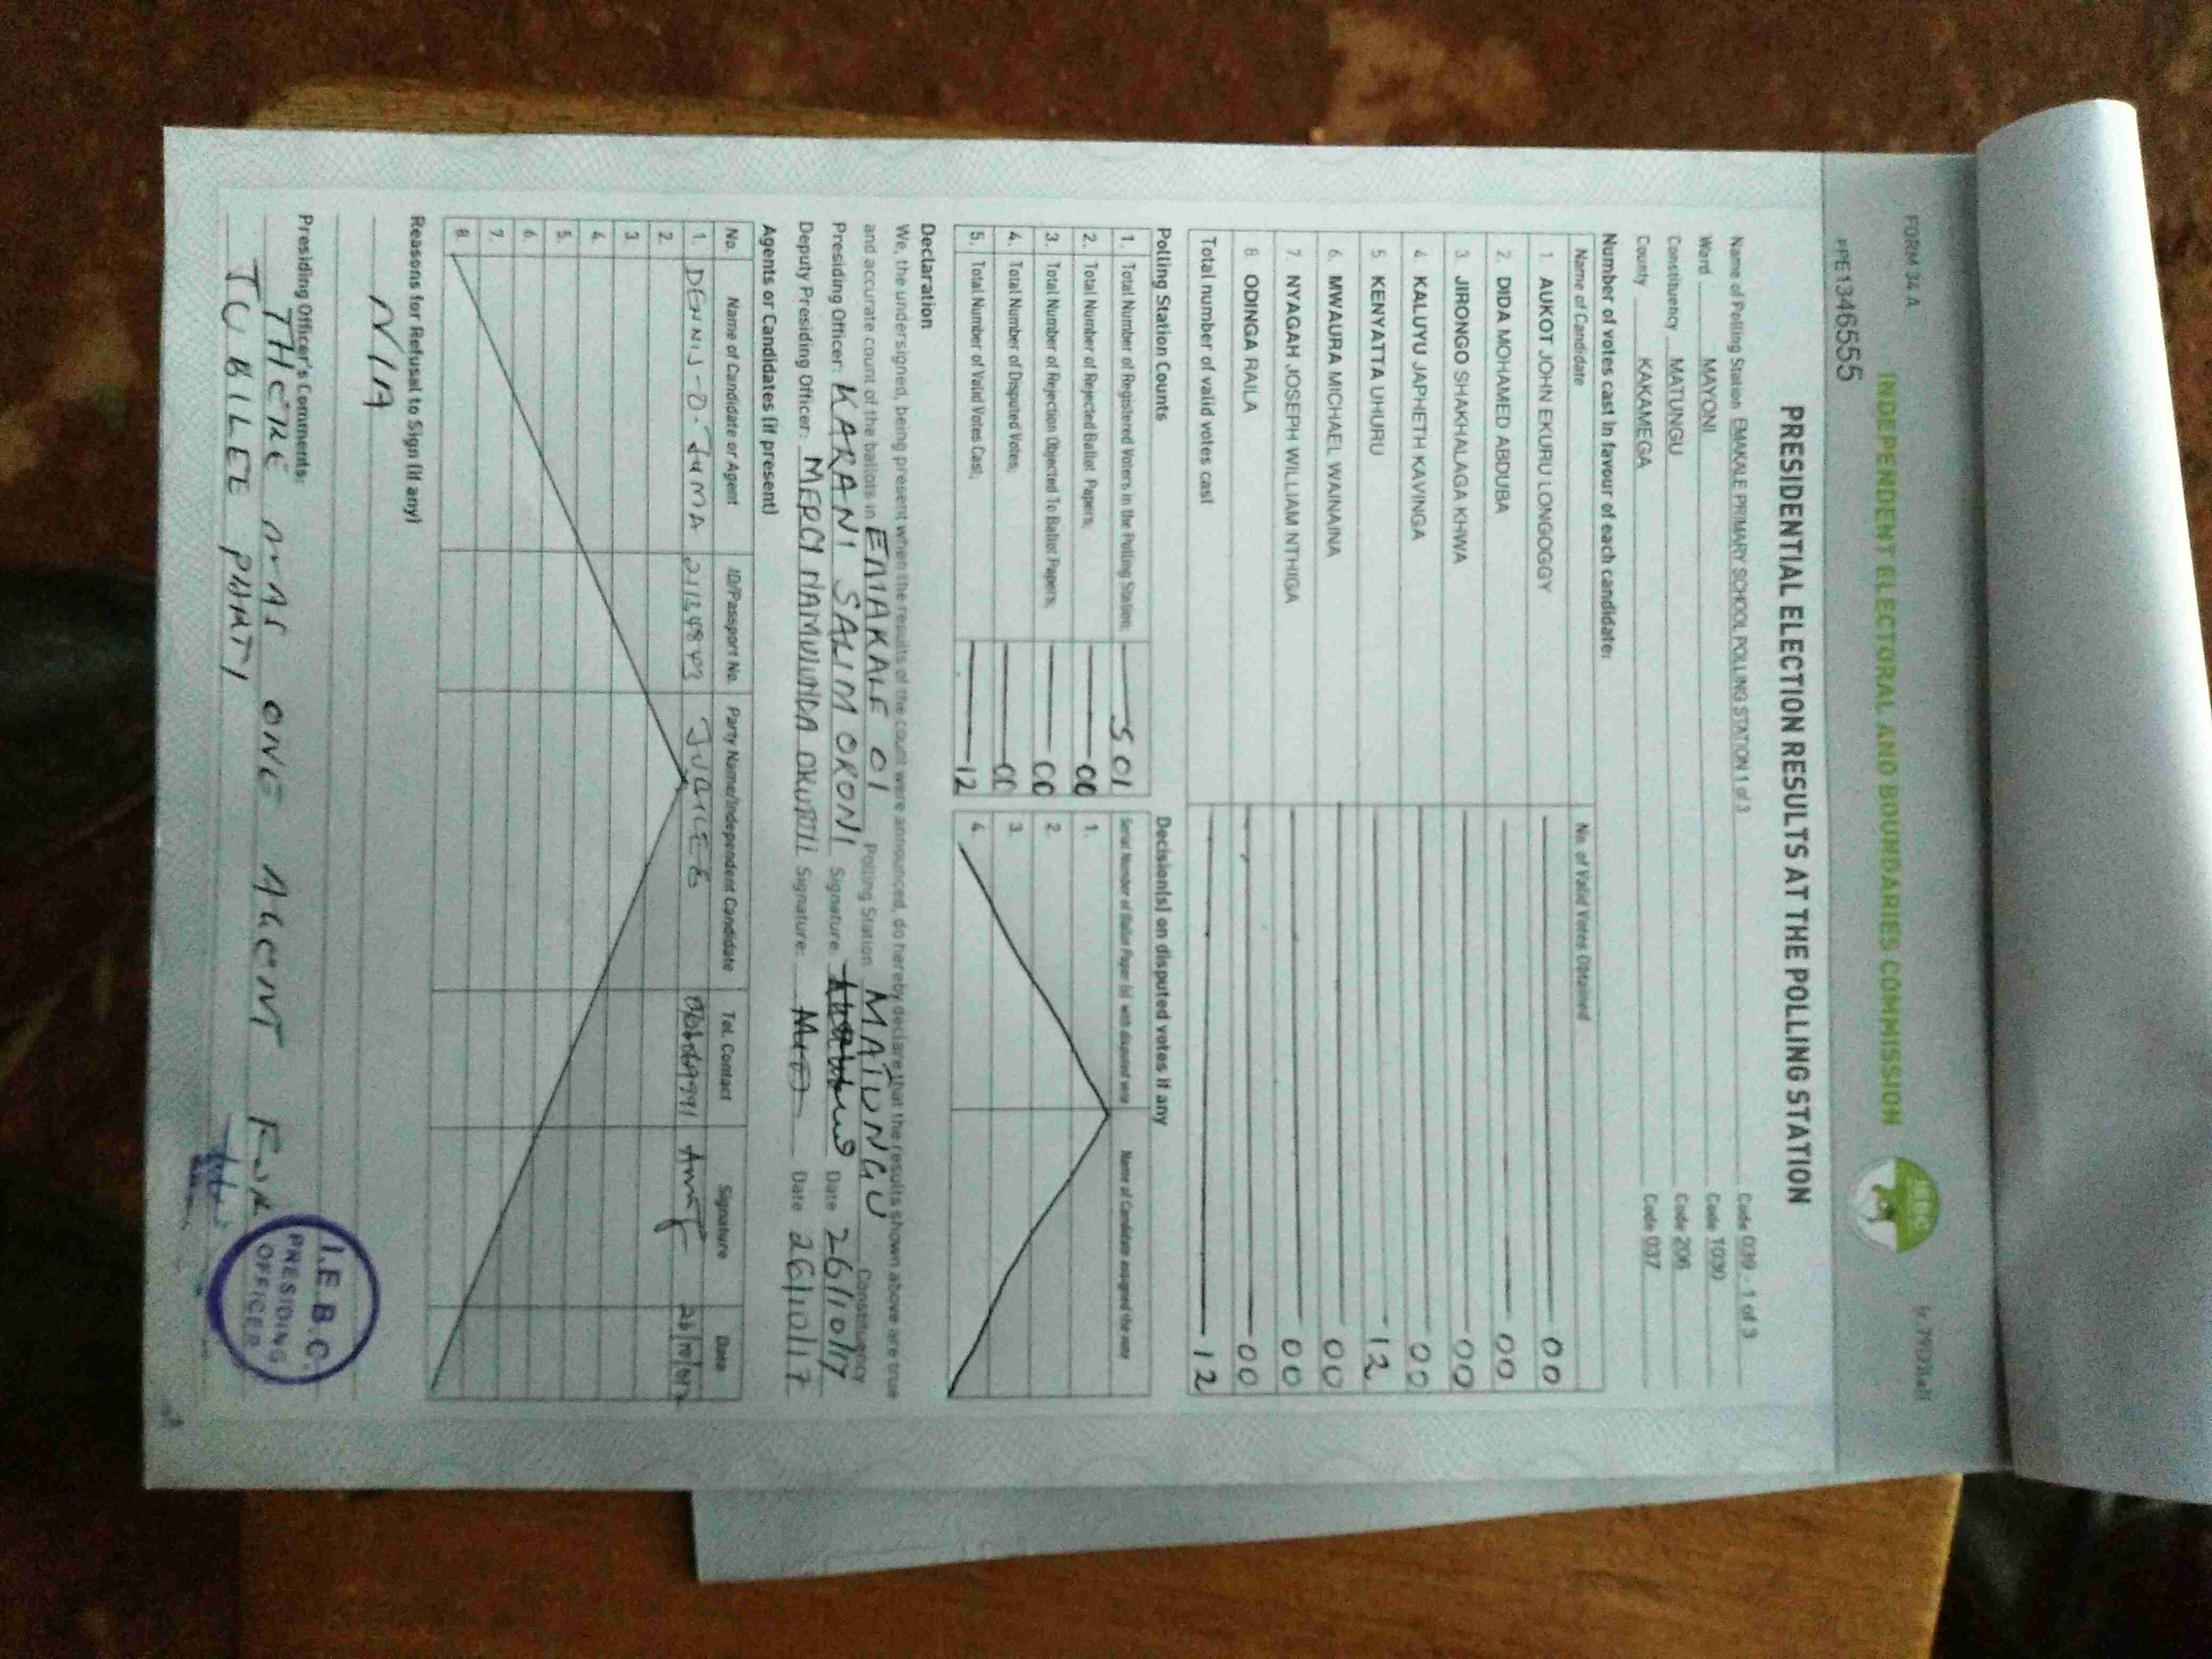 FORM 34 A
INDEPENDENT ELECTORAL AND BOUNDARIES COMMISSION
IEBC
PPE134655
PRESIDENTIAL ELECTION RESULTS AT THE POLLING STATION
Name of Polling Station EMAKALE PRIMARY SCHOOL POLLING STATION 1 of 3 Code 039 - 1 of 3
Ward MAYONI Code 1030
Constituency MATUNGU Code 206
County KAKAMEGA Code 037
Number of votes cast in favour of each candidate:
Name of Candidate No. of Valid Votes Obtained
1. AUKOT JOHN EKURU LONGOGGY 00
2. DIDA MOHAMED ABDUBA 00
3 JIRONGO SHAKHALAGA KHWA 00
4 KALUYU JAPHETH KAVINGA 00
5 KENYATTA UHURU 12
6. MWAURA MICHAEL WAINAINA 00
7. NYAGAH JOSEPH WILLIAM NTHIGA 00
8 ODINGA RAILA 00
Total number of valid votes cast 12
Polling Station Counts Decision(s) on disputed votes if any
1. Total Number of Registered Voters in the Polling Station; 501 Serial Number of Ballot Paper (s) with disputed vote Name of Candidate assigned the vote
2. Total Number of Rejected Ballot Papers; 00 1.
3. Total Number of Rejection Objected To Ballot Papers; 00 2
4. Total Number of Disputed Votes; 00 3.
5. Total Number of Valid Votes Cast; 12 4
Declaration
We, the undersigned, being present when the results of the count were announced, do hereby declare that the results shown above are true
and accurate count of the ballots in EMAKALE 01 Polling Station MATUNGU Constituency
Presiding Officer: KARANI SALIM OKONI Signature: Date 26/10/17
Deputy Presiding Officer: MERCY Signature: Date 26/10/17
Agents or Candidates (if present)
No. Name of Candidate or Agent ID/Passport No. Party Name/Independent Candidate Tel. Contact Signature Date
1. DENNIS O. JUMA JUBILEE 26/10/017
2.
3.
4.
5.
6.
7.
8.
Reasons for Refusal to Sign (if any)
N/A
Presiding Officer's Comments:
THERE WAS ONE AGENT FOR
JUBILEE PARTY
I.E.B.C.
PRESIDING
OFFICER